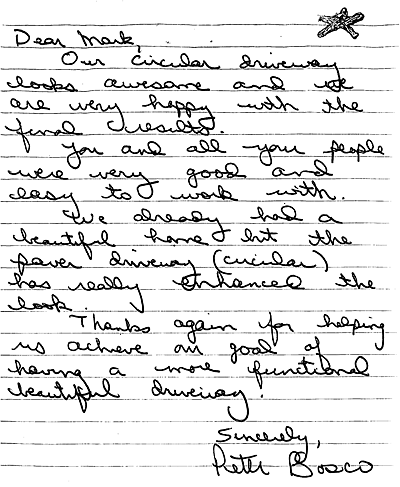 Dear Mark,
Our circular driveway
looks awesome and we
are very happy with the
final results.
You and all your people
were very good and
easy to work with.
We already had a
beautiful home but the
paver driveway (circular)
has really enhanced the
look.
Thanks again for helping
us achieve our goal of
having a more functional
beautiful driveway!
Sincerely,
Bosco